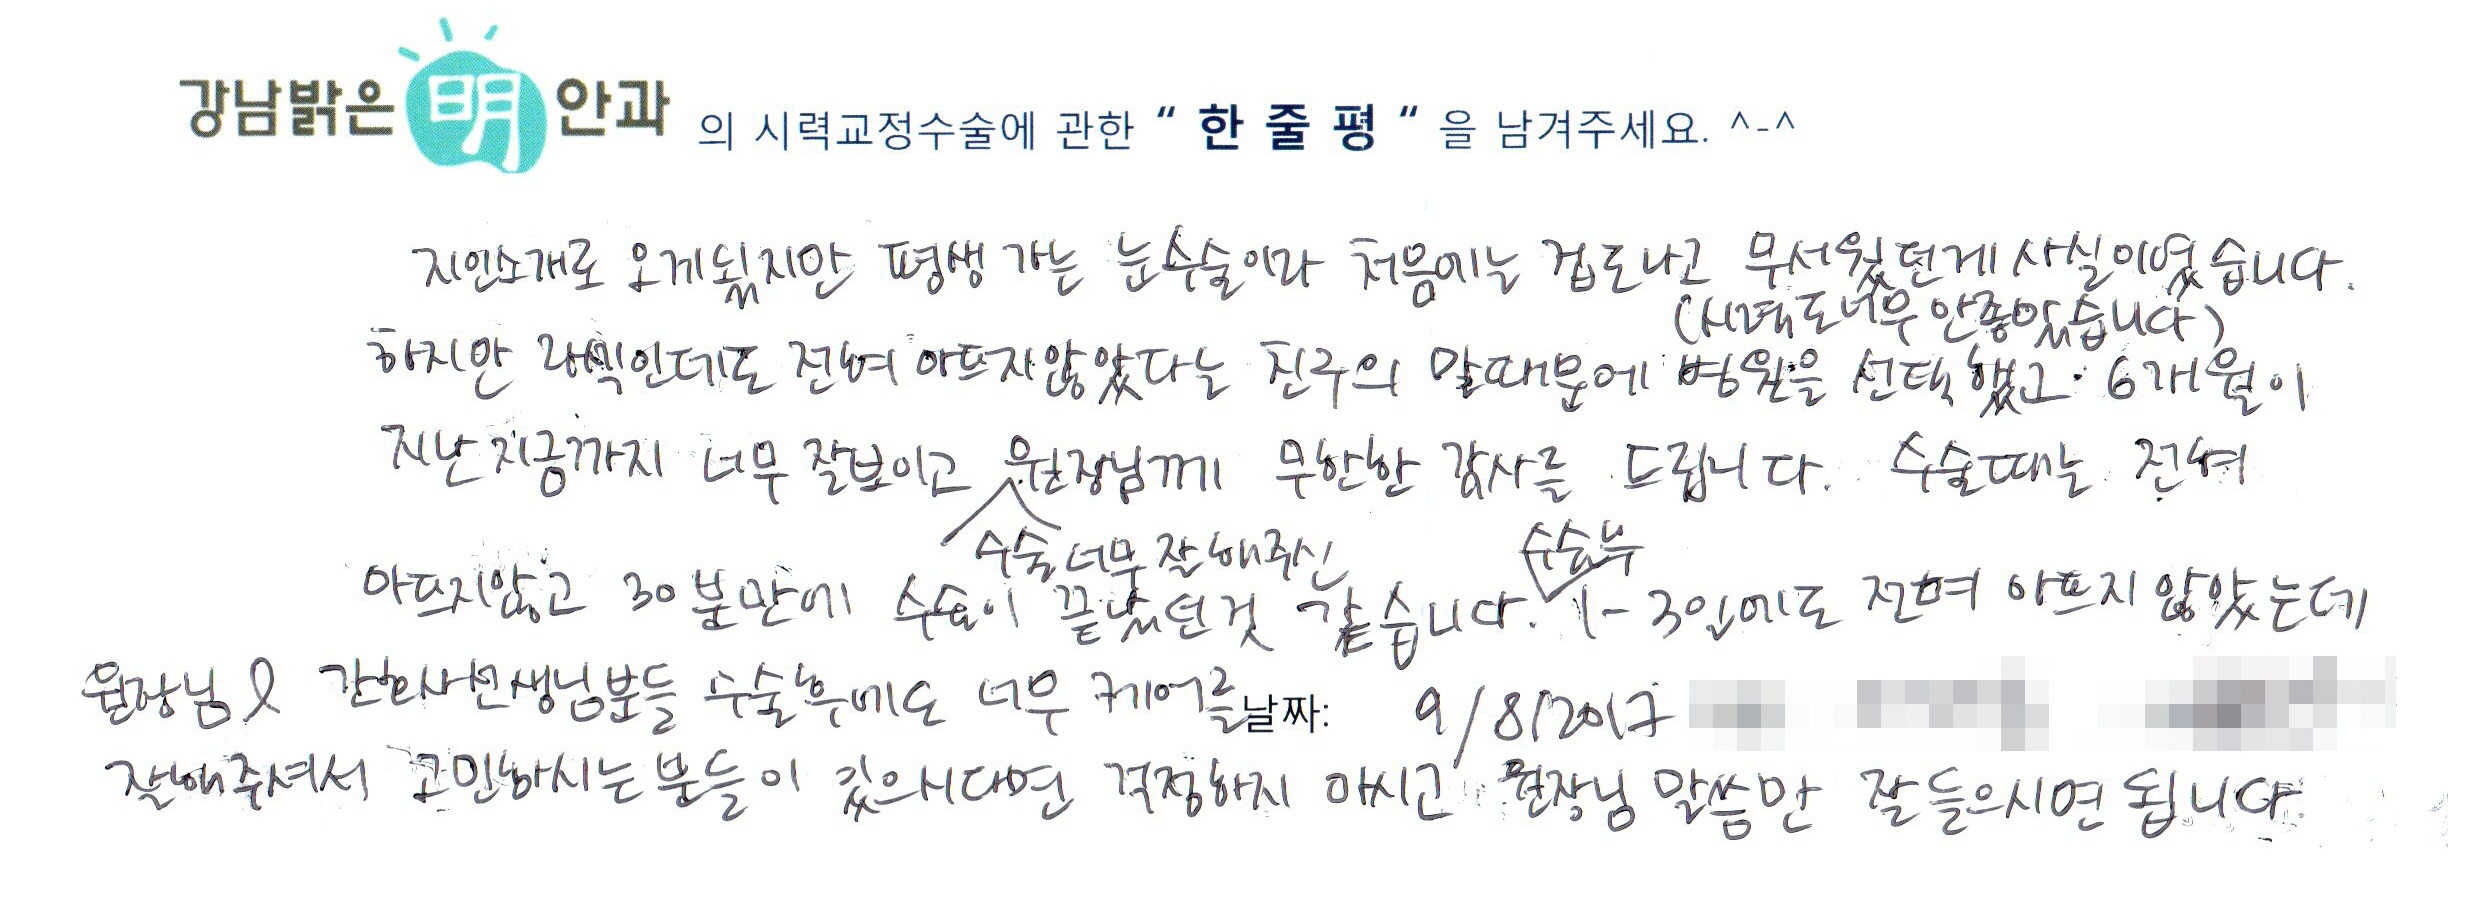 강남밝은 明 안과 의 시력교정수술에 관한 “ 한 줄 평 “ 을 남겨주세요. ^-^
지인소개로 오게됬지만 평생 가는 눈수술이라 처음에는 겁도나고 무서웠던게 사실이였습니다.
(시력도 너무 안좋았습니다)
하지만 라섹인데도 전혀 아프지않았다는 친구의 말때문에 병원을 선택했고. 6개월이
지난 지금까지 너무 잘보이고 원장님께 무한한 감사를 드립니다. 수술때는 전혀
수술 너무 잘해주신
수술후
아프지않고 30분만에 수술이 끝났던것 같습니다. 1-3일에도 전혀 아프지 않았는데
원장님& 간호사선생님분들 수술후에도 너무 케어를
날짜: 9/8/2017
잘해주셔서 고민하시는분들이 있으시다면 걱정하지 마시고 원장님 말씀만 잘들으시면 됩니다.